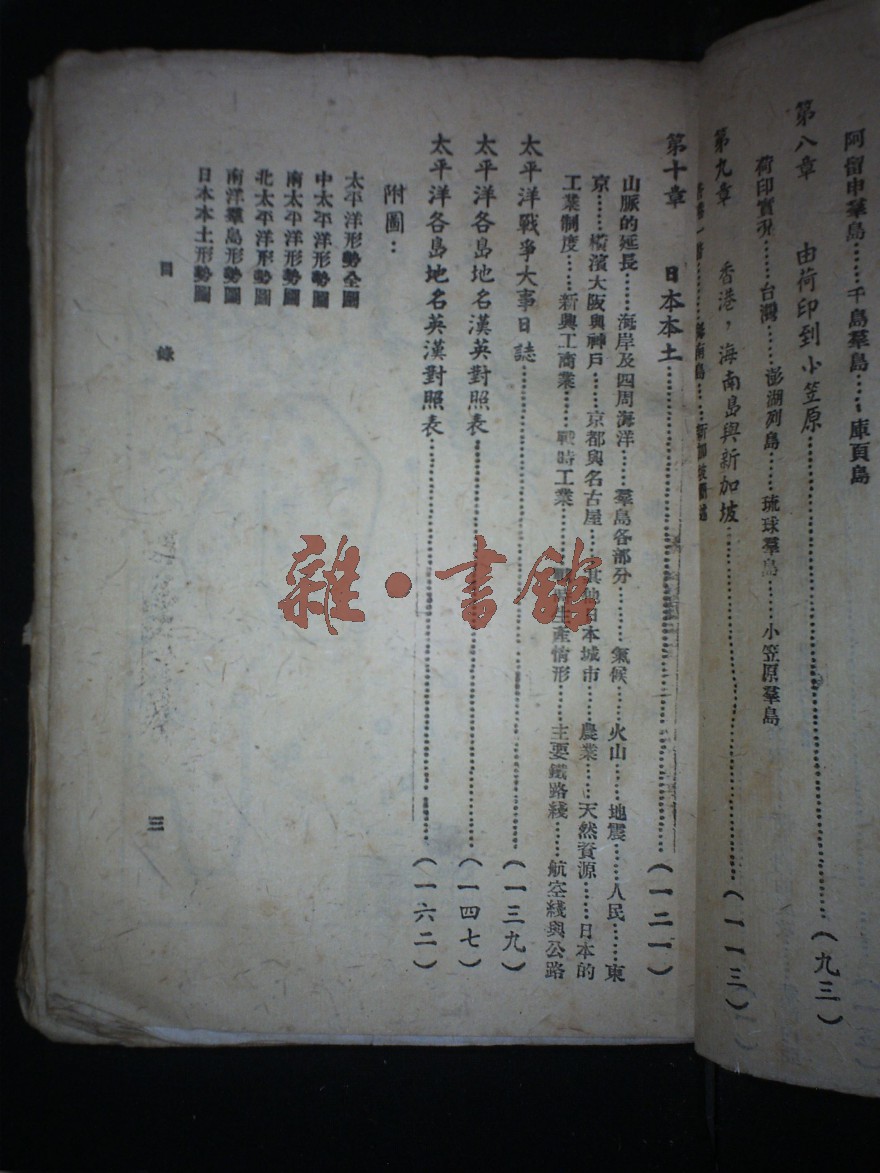 阿留申羣島……千島羣島……庫頁島
第八章　由荷印到小笠原……(九三)
荷印實況……台灣……澎湖列島……琉球羣島……小笠原羣島
第九章　香港，海南島與新加坡……(一一三)
海南島……
第十章　日本本土……(一二一)
山脈的延長……海岸及四周海洋……羣島各部分……氣候……火山……地震……人民……東
京……橫濱大阪與神戶……京都與名古屋……其他日本城市……農業……天然資源……日本的
工業制度……新興工商業……戰時工業……生產情形……主要鐵路綫……航空綫與公路
太平洋戰爭大事日誌……(一三九)
太平洋各島地名漢英對照表……(一四七)
太平洋各島地名英漢對照表……(一六二)
附圖：
太平洋形勢全圖
中太平洋形勢圖
南太平洋形勢圖
北太平洋形勢圖
南洋羣島形勢圖
日本本土形勢圖
目錄
三
雜·書館